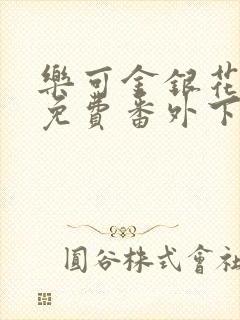 樂可金銀花
免費番外下
圓谷株式會社